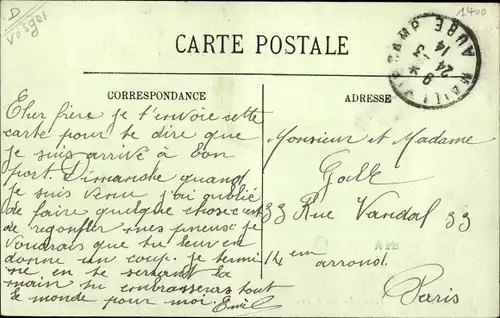 D
Vosges
1400
CARTE POSTALE
MAILLY-LE-CAMP
AUBE
9 *
24 -3
14
CORRESPONDANCE
ADRESSE
Cher frère je t'envoie cette
carte pour te dire que
je suis arrivé à bon
port. Dimanche quand
je suis venu j'ai oublié
de faire quelque chose c'est
de regonfler mes pneus. Je
voudrais que tu leur en
donne un coup. Je termi
ne en te serrant la
main tu embrasseras tout
le monde pour moi. Emil
Monsieur et Madame
Galk
33 Rue Vandal 33
14em arrond.
Paris